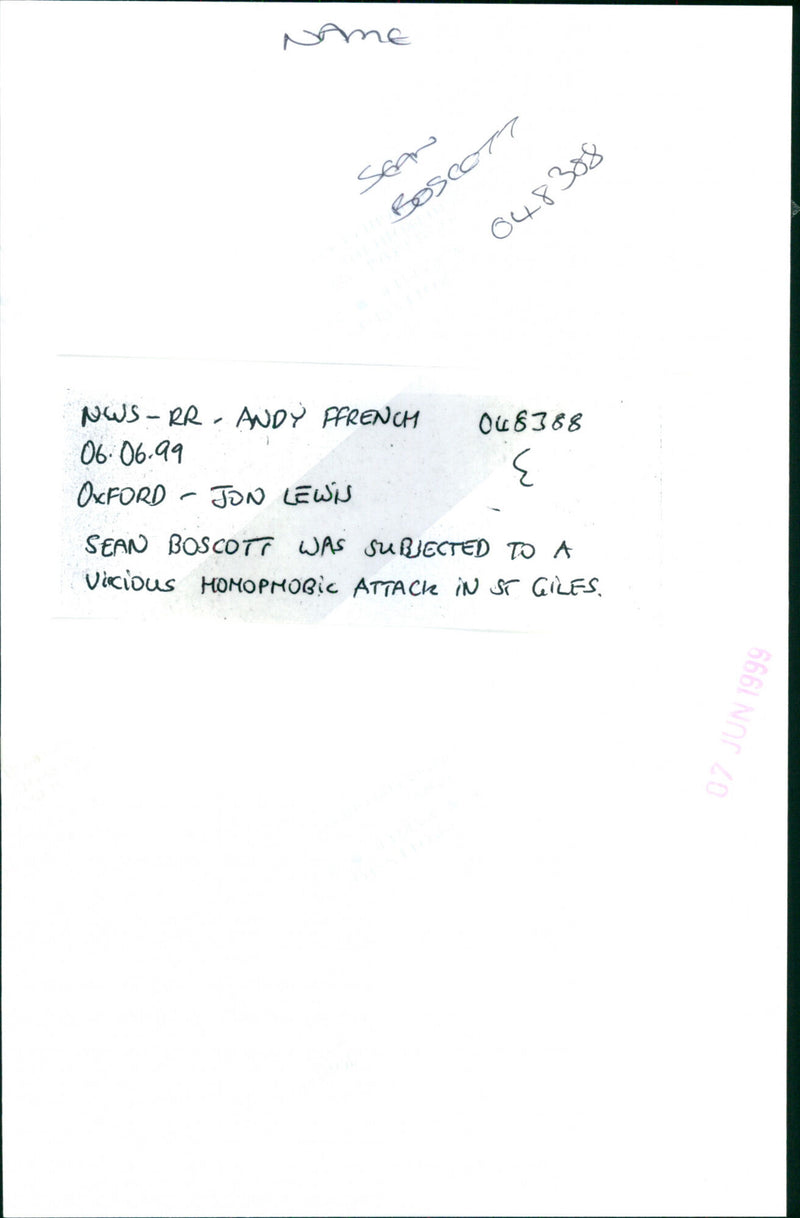 NAME
SEAN
BOSCOTT
048388
NWS - RR - ANDY FFRENCH 048388
06.06.99
OXFORD - JON LEWIS
SEAN BOSCOTT WAS SUBJECTED TO A
VICIOUS HOMOPHOBIC ATTACK IN ST GILES.
07 JUN 1999